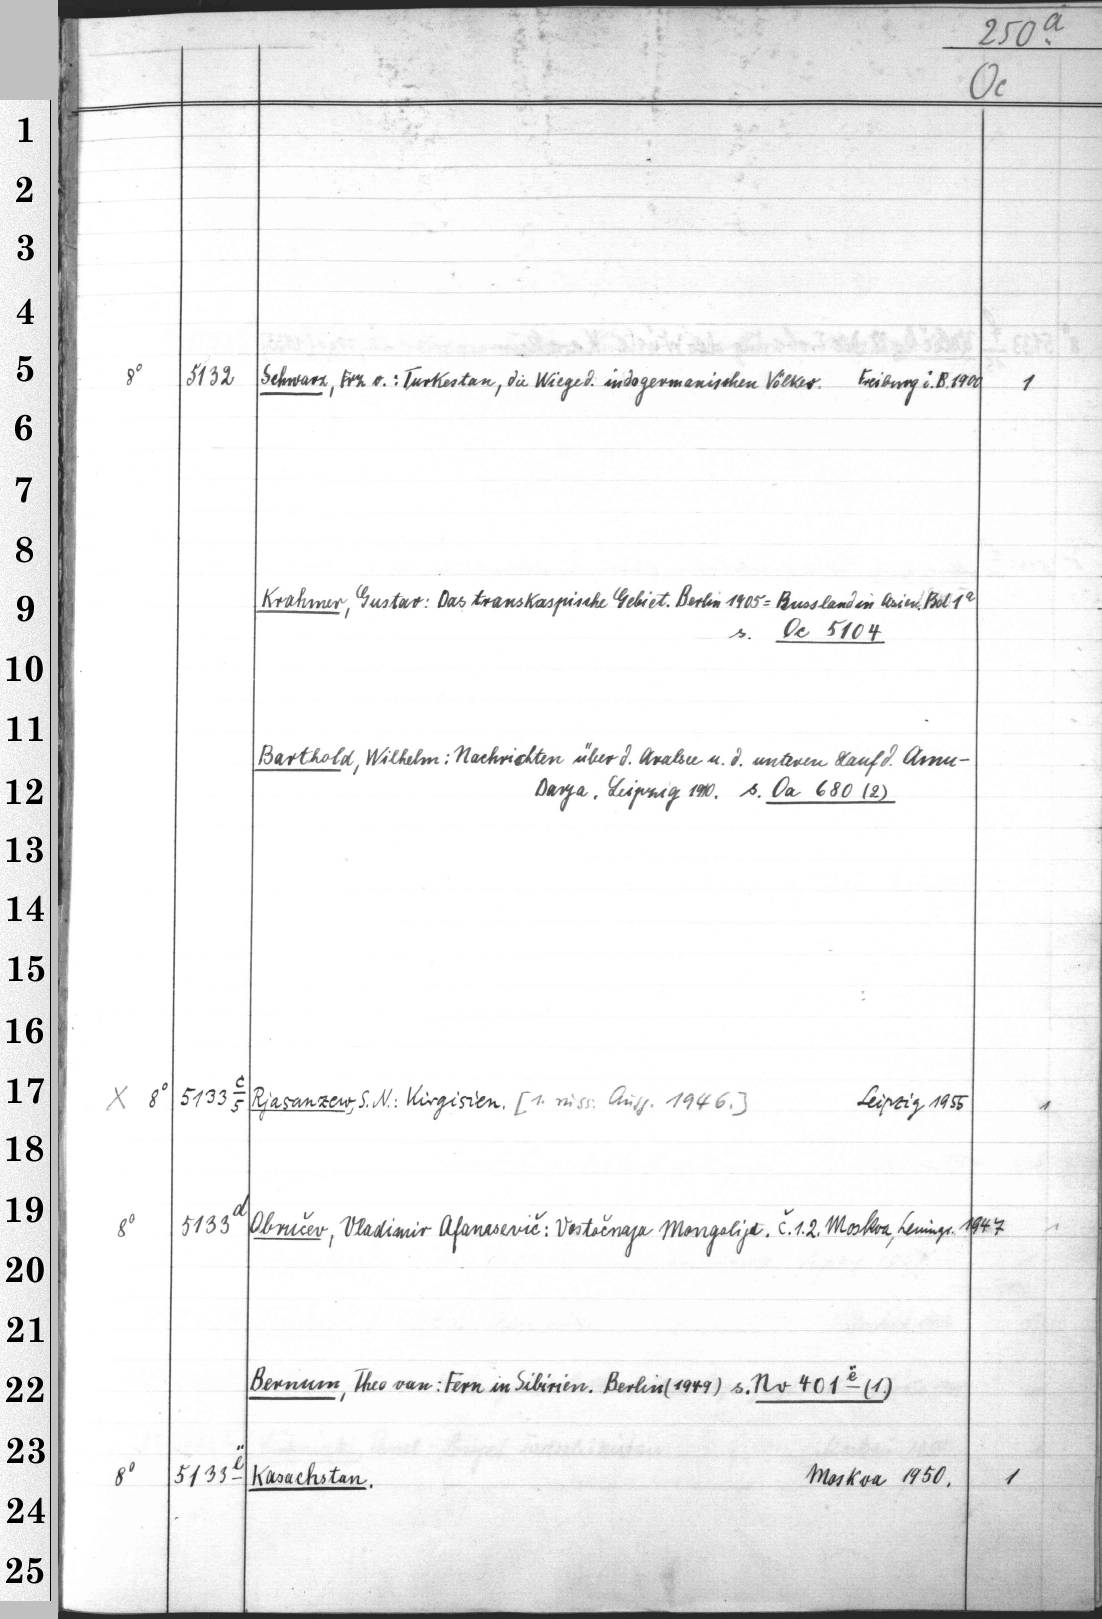 250 a
Oc
1
2
3
4
5 8° 5132 Schwarz, Frz v.: Turkestan, die Wiege d. indogermanischen Völker. Freiburg i. B. 1900 1
6
7
8
9 Krahmer, Gustav: Das transkaspische Gebiet. Berlin 1905 = Russland in Asien. Bd. 1 a
s. Oc 5104
10
11 Barthold, Wilhelm: Nachrichten über d. Aralsee u. d. unteren Lauf d. Amu-
12 Darja. Leipzig 1910. s. Oa 680 (2)
13
14
15
16
17 X 8° 5133 c/5 Rjasanzew, S. N.: Kirgisien. [1. russ. Ausg. 1946.] Leipzig 1955 1
18
19 8° 5133 d Obručev, Vladimir Afanasevič: Vostočnaja Mongolija. Č. 1.2. Moskva, Leningr. 1947 1
20
21
22 Bernum, Theo van: Fern in Sibirien. Berlin (1949) s. Nv 401 ë (1)
23
8° 5133 Kasachstan. Moskva 1950. 1
24
25